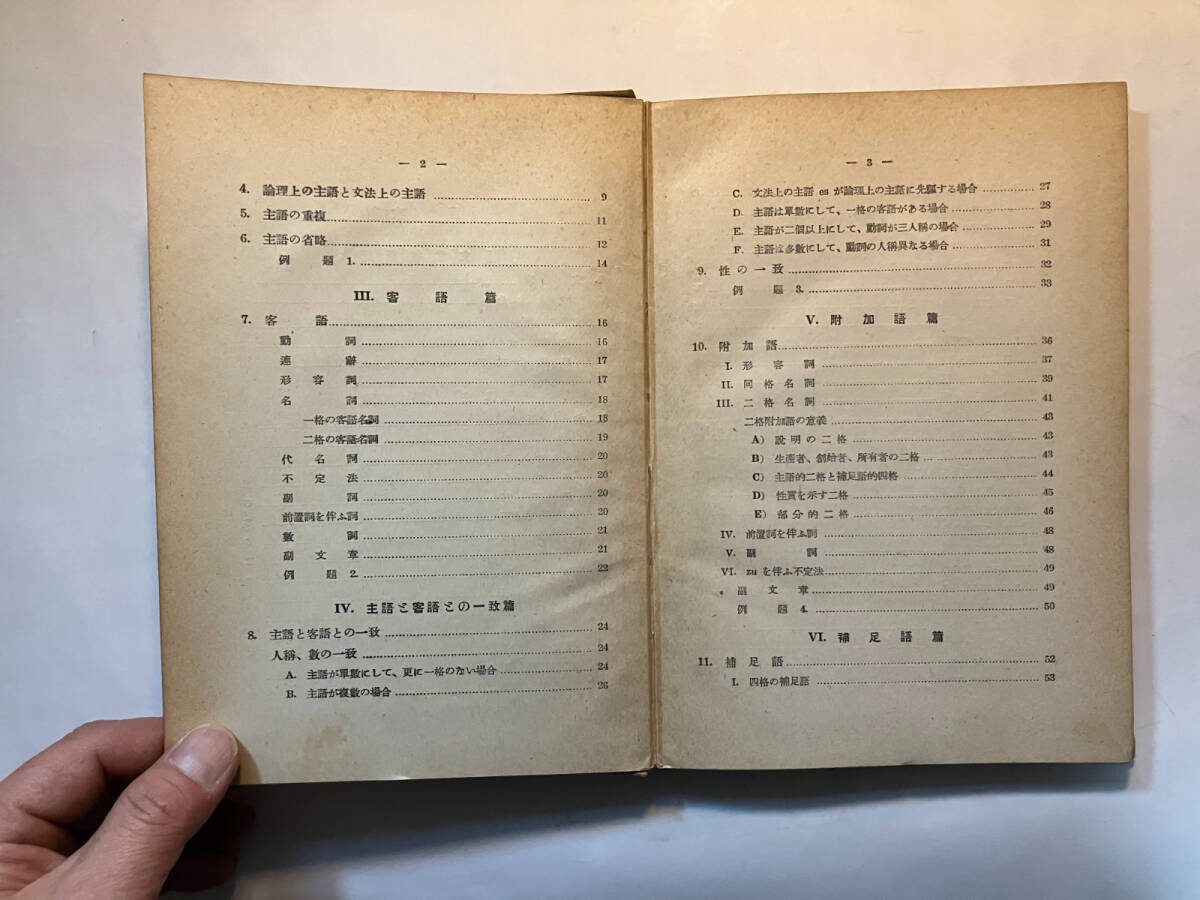 — 2 —
4. 論理上の主語と文法上の主語 ........ 9
5. 主語の重複 ........ 11
6. 主語の省略 ........ 12
例題 1. ........ 14
III. 客語篇
7. 客語 ........ 16
動詞 ........ 16
連辭 ........ 17
形容詞 ........ 17
名詞 ........ 18
一格の客語名詞 ........ 18
二格の客語名詞 ........ 19
代名詞 ........ 20
不定法 ........ 20
副詞 ........ 20
前置詞を伴ふ詞 ........ 20
數詞 ........ 21
副文章 ........ 21
例題 2. ........ 22
IV. 主語と客語との一致篇
8. 主語と客語との一致 ........ 24
人稱、數の一致 ........ 24
A. 主語が單數にして、更に一格のない場合 ........ 24
B. 主語が複數の場合 ........ 26
— 3 —
C. 文法上の主語 es が論理上の主語に先驅する場合 ........ 27
D. 主語は單數にして、一格の客語がある場合 ........ 28
E. 主語が二個以上にして、動詞が三人稱の場合 ........ 29
F. 主語は多數にして、動詞の人稱異なる場合 ........ 31
9. 性の一致 ........ 32
例題 3. ........ 33
V. 附加語篇
10. 附加語 ........ 36
I. 形容詞 ........ 37
II. 同格名詞 ........ 39
III. 二格名詞 ........ 41
二格附加語の意義 ........ 43
A) 說明の二格 ........ 43
B) 生產者、創始者、所有者の二格 ........ 43
C) 主語的二格と補足語的四格 ........ 44
D) 性質を示す二格 ........ 45
E) 部分的二格 ........ 46
IV. 前置詞を伴ふ詞 ........ 48
V. 副詞 ........ 48
VI. zu を伴ふ不定法 ........ 49
副文章 ........ 49
例題 4. ........ 50
VI. 補足語篇
11. 補足語 ........ 52
I. 四格の補足語 ........ 53